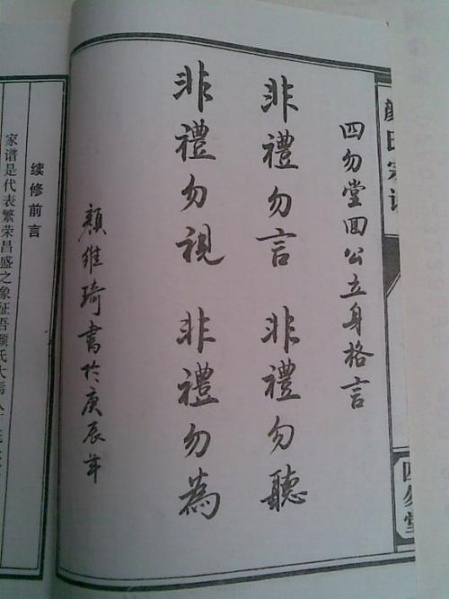 颜氏宗谱
四勿堂
四勿堂回公立身格言
非禮勿言　非禮勿聽
非禮勿視　非禮勿為
顏維琦書於庚辰年
续修前言
家谱是代表繁荣昌盛之象征吾颜氏大